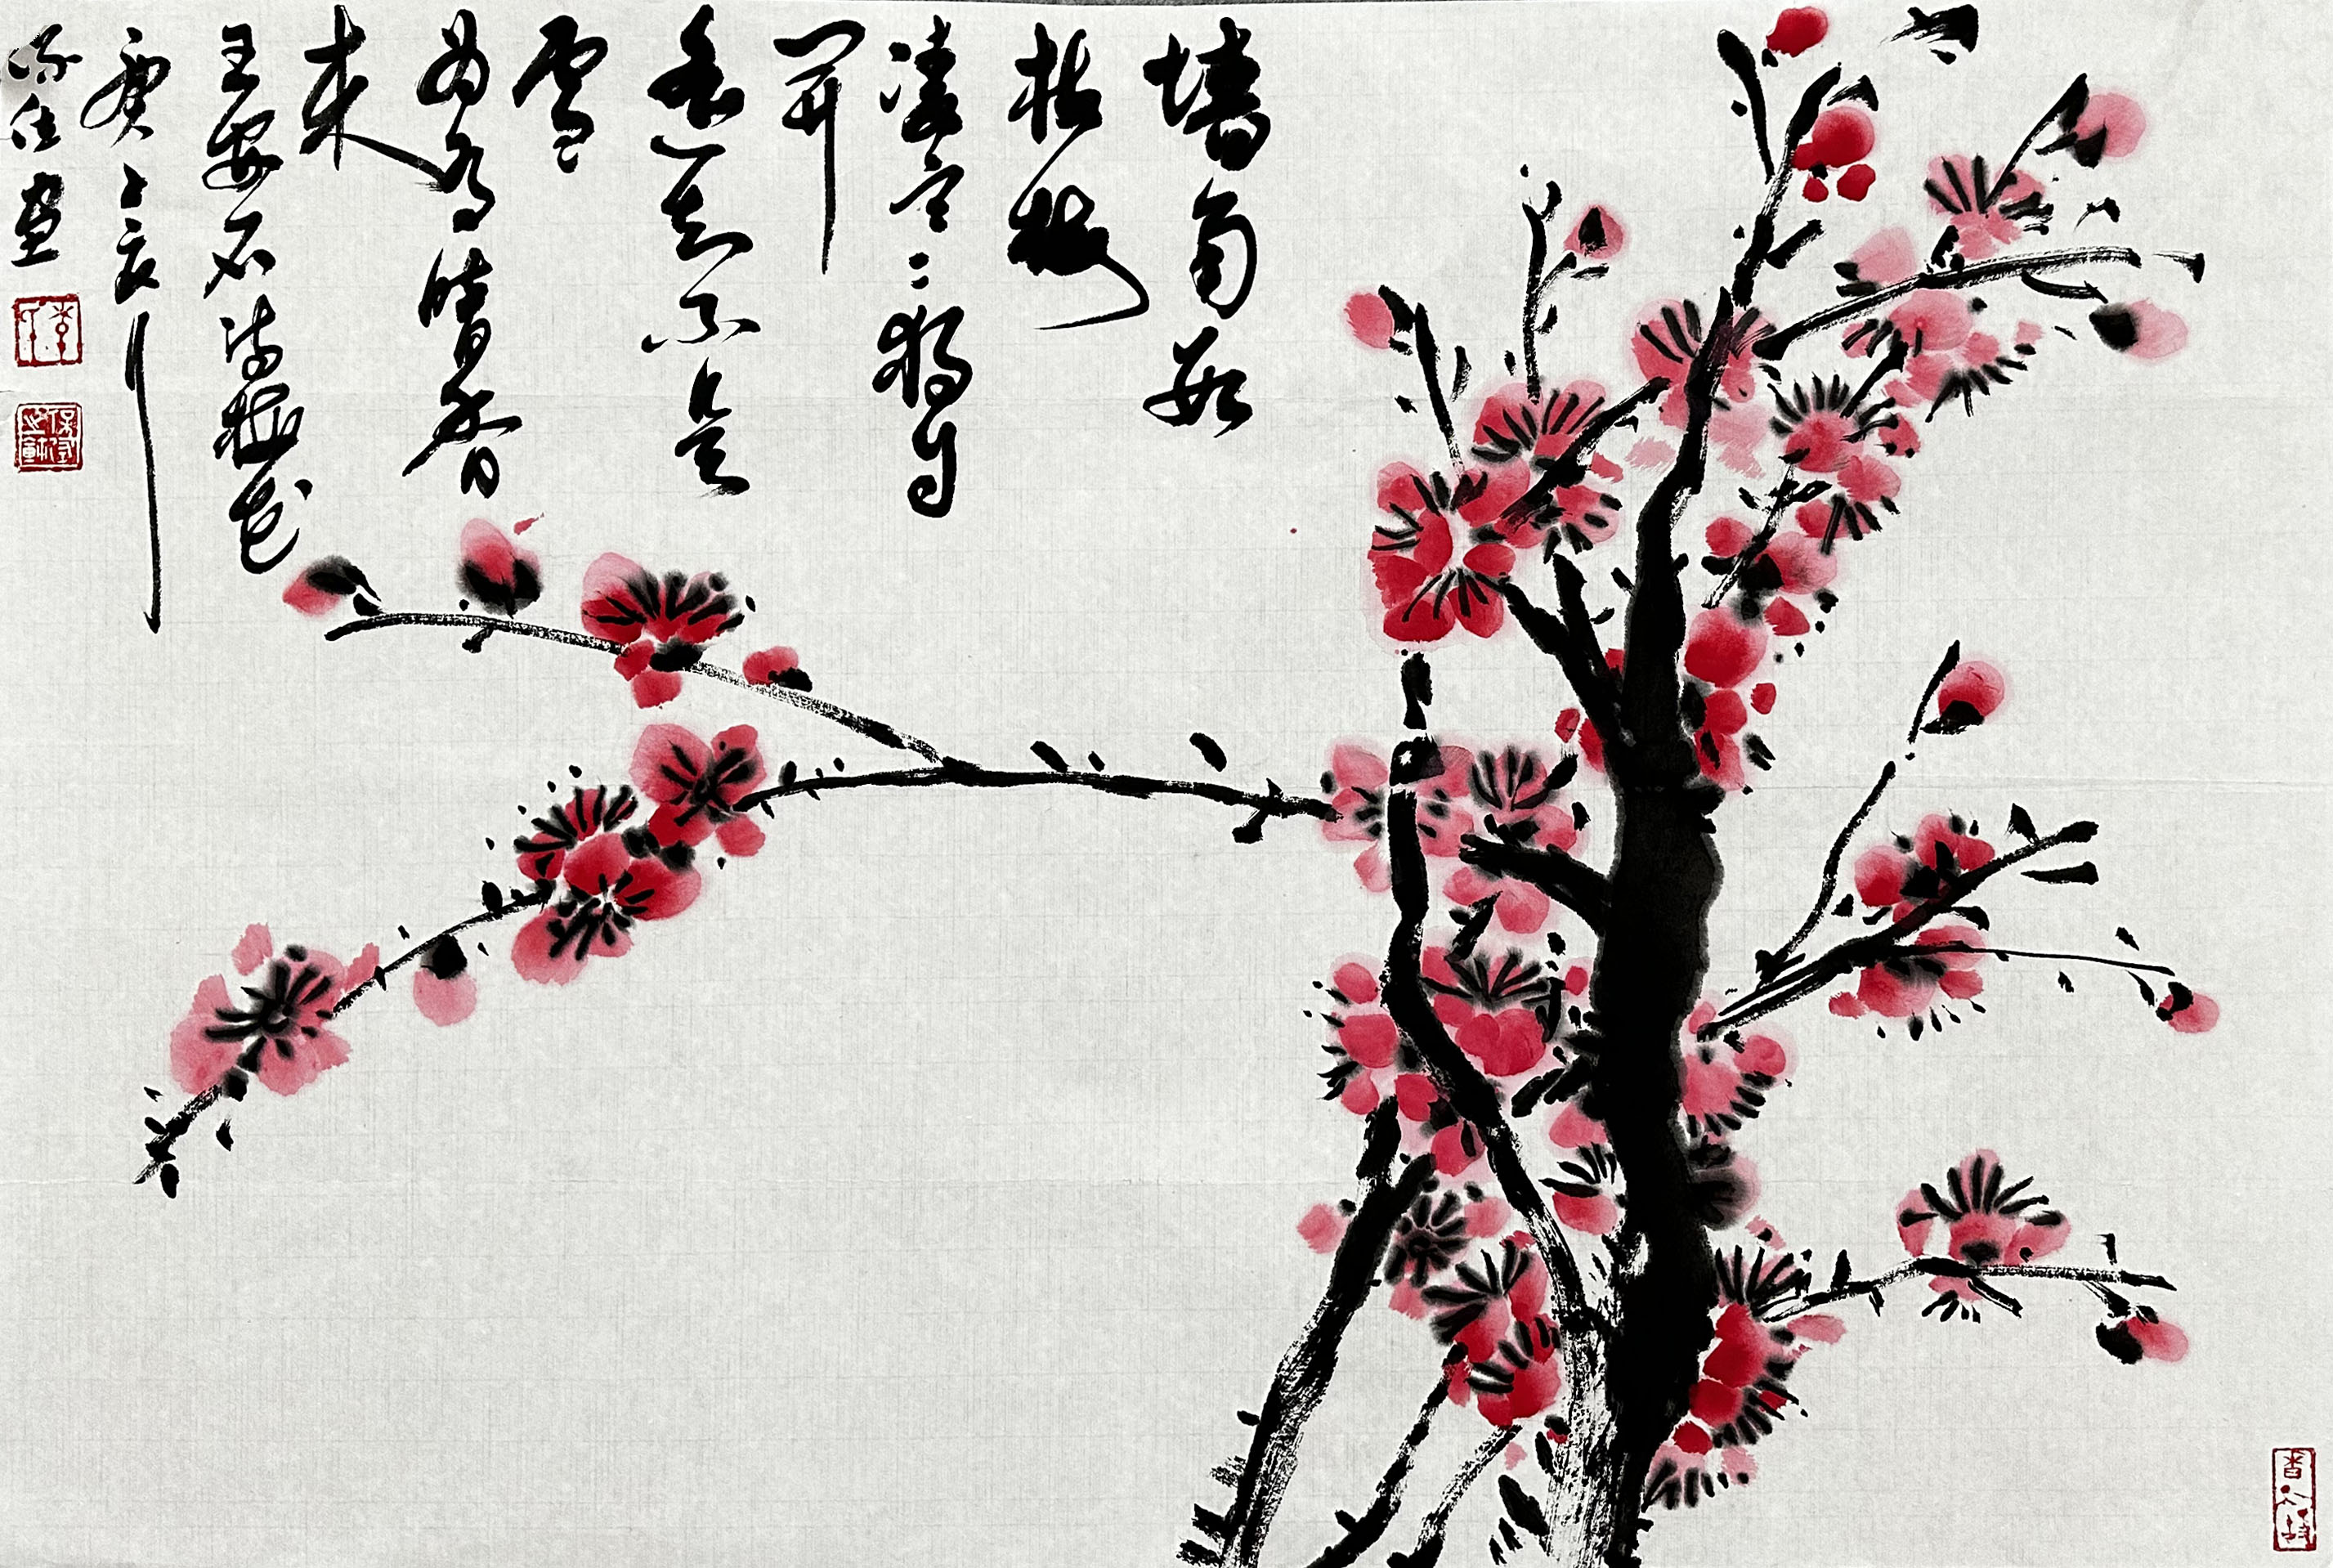 墙角数
枝梅
凌寒独自
開
遥知不是
雪
为有暗香
来
王安石诗梅花
庚子
画